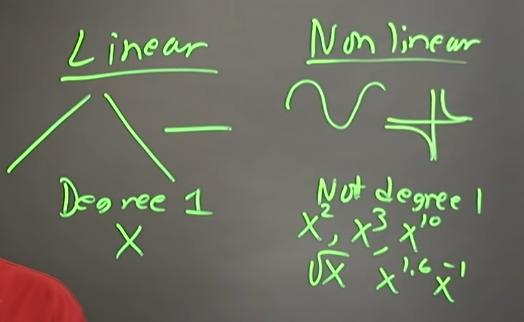 Linear
Degree 1
X
Non linear
Not degree 1
x², x³, x¹⁰
√x x¹·⁶ x⁻¹